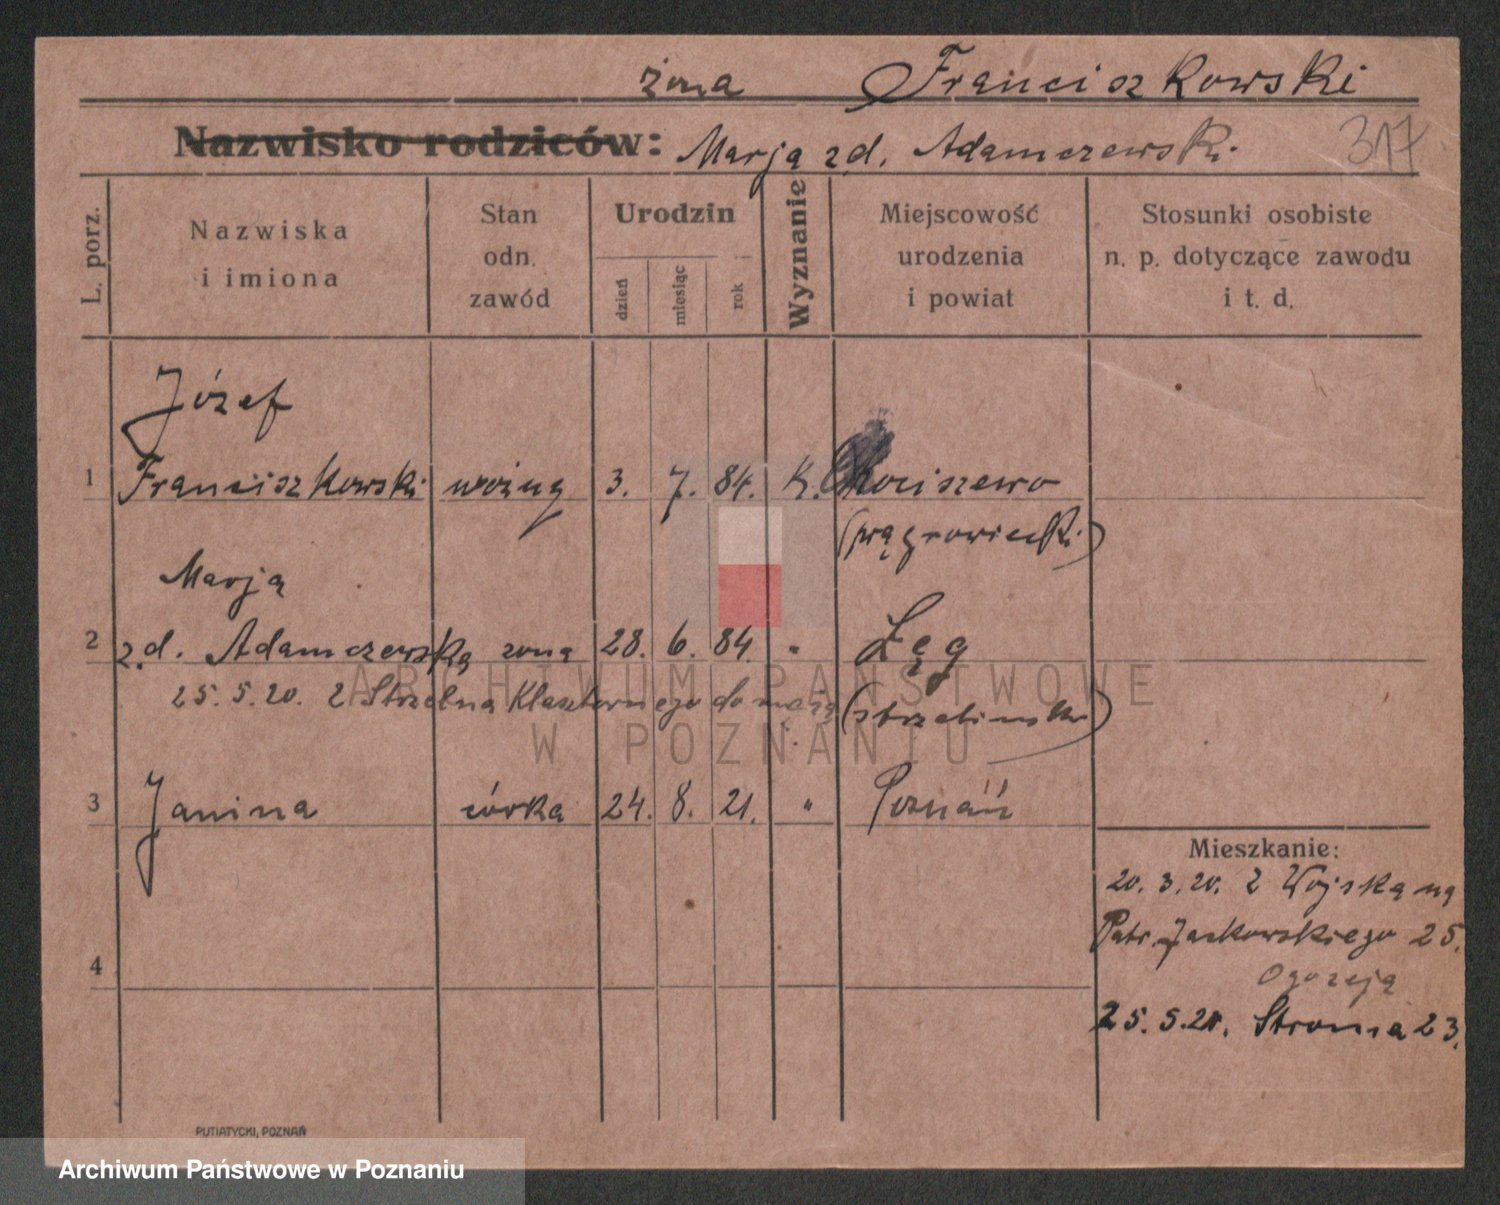 żona Franciszkowski
Nazwisko rodziców: Marja z d. Adamczewski
317
L. porz.
Nazwiska
i imiona
Stan
odn.
zawód
Urodzin
dzień
miesiąc
rok
Wyznanie
Miejscowość
urodzenia
i powiat
Stosunki osobiste
n. p. dotyczące zawodu
i t. d.
Józef
1 Franciszkowski woźny 3. 7. 84. K. Kociszewo
(wągrowiecki)
Marja
2 z.d. Adamczewska żona 28. 6. 84. " Łęg
25.5.20. z Strzelna Klasztornego do męża (strzeliński)
3 Janina córka 24. 8. 21. " Poznań
Mieszkanie:
20.3.20. z Wojska na
Patr. Jackowskiego 25.
4
25.5.20. Stroma 23.
PUTIATYCKI, POZNAŃ
ARCHIWUM PAŃSTWOWE
W POZNANIU
Archiwum Państwowe w Poznaniu